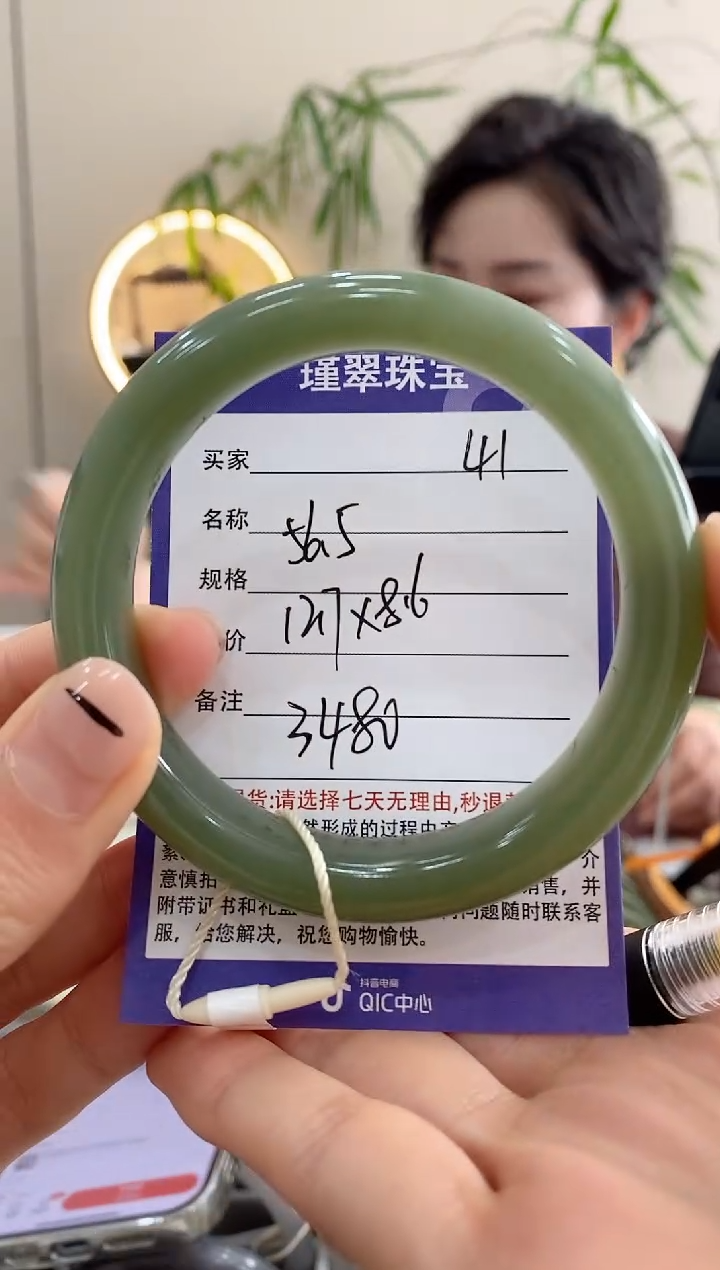 瑾翠珠宝
买家 41
名称 56.5
规格 12.7×8.6
价
备注 3480
货:请选择七天无理由,秒退
然形成的过程中
介
意慎拍 销售，并
附带证书和礼盒 问题随时联系客
服，给您解决，祝您购物愉快。
抖音电商
QIC中心